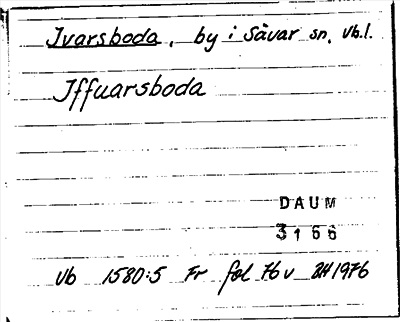 Ivarsboda, by i Sävar sn, Vb.l.
Iffuarsboda
DAUM
3166
Vb 1580:5 Fr fol 76 v 2H 1976